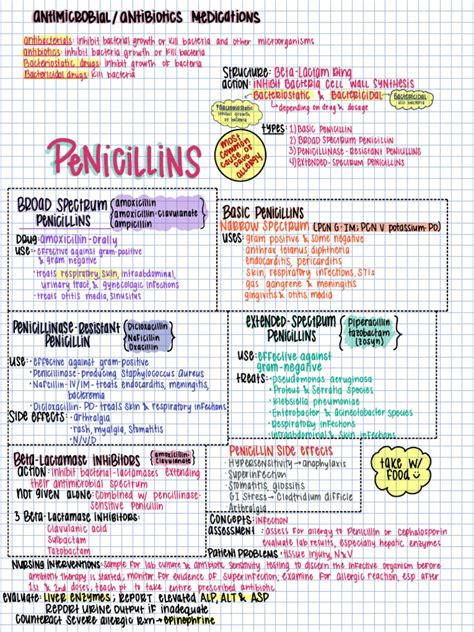 ANTIMICROBIAL/ANTIBIOTICS MEDICATIONS
Antibacterials: inhibit bacterial growth or kill bacteria and other microorganisms
Antibiotics: inhibit bacteria growth or kill bacteria
Bacteriostatic drugs: inhibit growth of bacteria
Bactericidal drugs: kill bacteria
STRUCTURE: Beta-Lactam Ring
ACTION: INHIBIT BACTERIA CELL WALL SYNTHESIS
Bacteriostatic & Bactericidal
depending on drug & dosage
Bacteriostatic
inhibit growth
of bacteria
Bactericidal
kill bacteria
PENICILLINS
most
common
cause of
drug
allergy
TYPES: 1) Basic Penicillin
2) Broad Spectrum Penicillin
3) Penicillinase-Resistant Penicillins
4) Extended-Spectrum Penicillins
BROAD SPECTRUM
PENICILLINS
amoxicillin
amoxicillin-clavulanate
ampicillin
DRUG: amoxicillin-orally
USE: effective against gram-positive
& gram negative
treats respiratory, skin, intraabdominal,
urinary tract, & gynecologic infections
treats otitis media, sinusitis
BASIC PENICILLINS
NARROW SPECTRUM (PCN G-IM; PCN V potassium-PO)
USES: gram positive & some negative
anthrax tetanus diphtheria
endocarditis, pericarditis
Skin, respiratory infections, STIs
gas gangrene & meningitis
gingivitis & otitis media
PENICILLINASE-RESISTANT
PENICILLIN
Dicloxacillin
Nafcillin
Oxacillin
USE: effective against gram-positive
Penicillin-producing Staphylococcus Aureus
Nafcillin-IV/IM-treats endocarditis, meningitis,
bacteremia
Dicloxacillin-PO-treats skin & respiratory infections
SIDE EFFECTS: arthralgia
rash, myalgia, stomatitis
N/V/D
EXTENDED-SPECTRUM
PENICILLINS
Piperacillin
tazobactam
(zosyn)
USE: effective against
gram-negative
TREATS: Pseudomonas aeruginosa
Proteus & Serratia species
Klebsiella pneumoniae
Enterobacter & acinetobacter species
Respiratory infections
Intraabdominal & skin infections
BETA-LACTAMASE INHIBITORS
amoxicillin-
clavulanate
ACTION: inhibit bacterial-lactamases extending
their antimicrobial spectrum
NOT GIVEN ALONE: Combined w/ penicillinase-
sensitive Penicillin
3 BETA-LACTAMASE INHIBITORS
Clavulanic acid
Sulbactam
Tazobactam
PENICILLIN SIDE EFFECTS
Hypersensitivity → anaphylaxis
Superinfection
Stomatitis, glossitis
GI Stress → Clodtridium difficle
Arthralgia
take w/
food
CONCEPTS: infection
ASSESSMENT: assess for allergy to Penicillin or cephalosporin
evaluate lab results, especially hepatic enzymes
PATIENT PROBLEMS: tissue injury, N&V
NURSING INTERVENTIONS: sample for lab culture & antibiotic sensitivity testing to assess the infective organism before
antibiotic therapy is started; monitor for evidence of superinfection, examine for allergic reaction, esp after
1st & 2nd doses; teach pt to take entire antibiotic prescribed
EVALUATE: LIVER ENZYMES; REPORT ELEVATED ALP, ALT & ASP
REPORT URINE OUTPUT IF INADEQUATE
COUNTERACT SEVERE ALLERGIC RXN → EPINEPHRINE